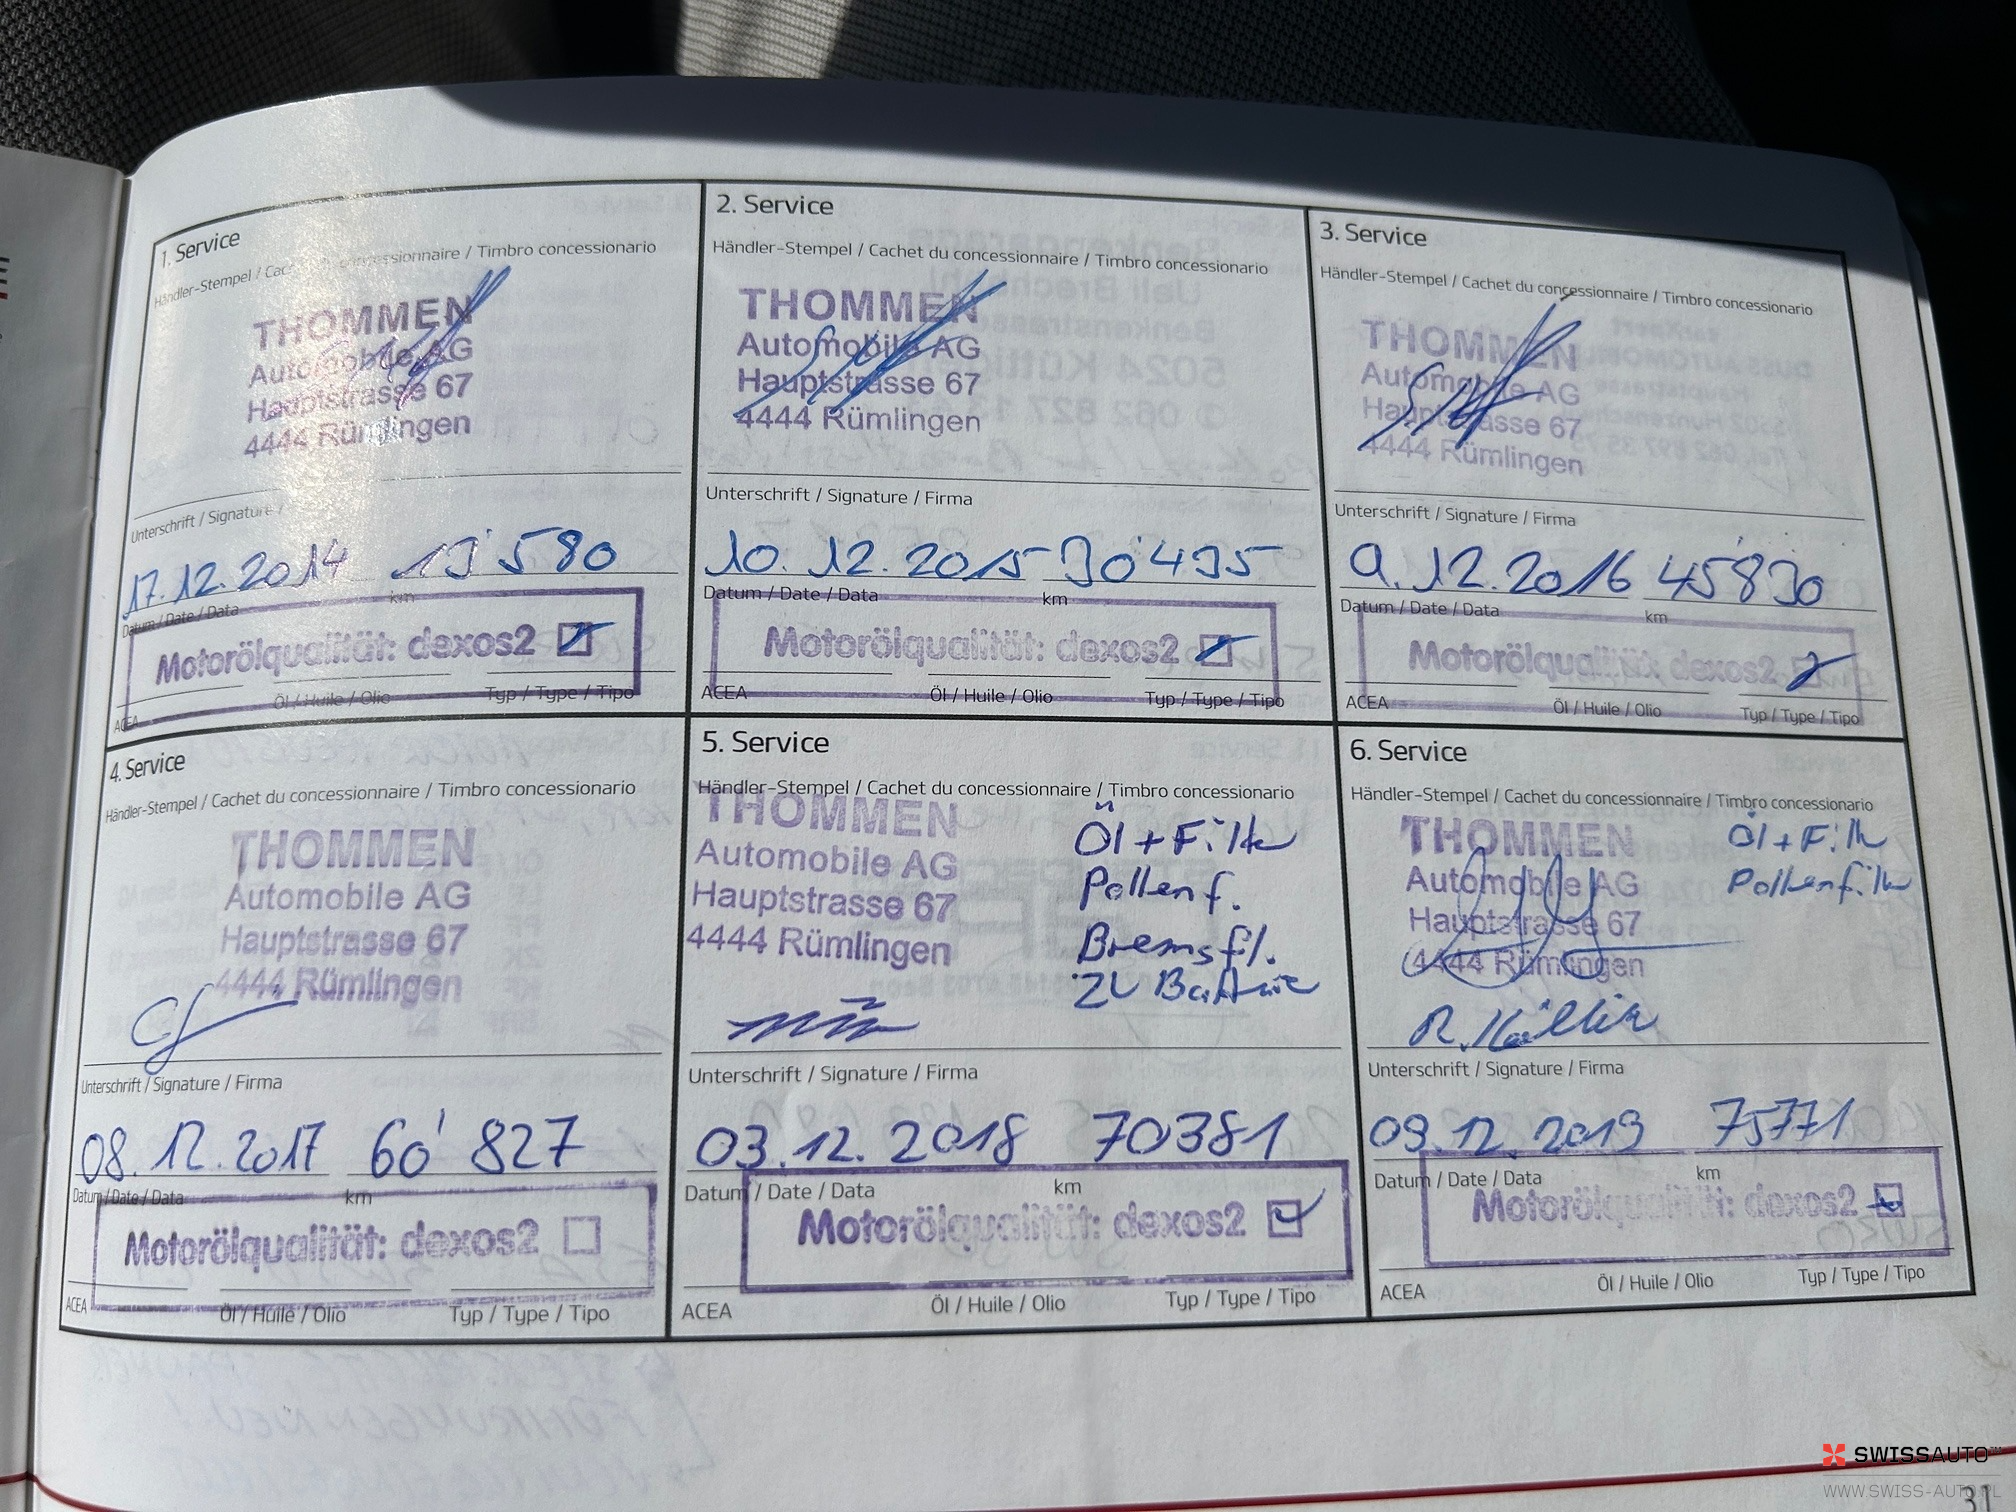 1. Service
Händler-Stempel / Cachet du concessionnaire / Timbro concessionario
THOMMEN
Automobile AG
Hauptstrasse 67
4444 Rümlingen
Unterschrift / Signature /
17.12.2014 15'580
Datum / Date / Data km
Motorölqualität: dexos2
ACEA Öl / Huile / Olio Typ / Type / Tipo
2. Service
Händler-Stempel / Cachet du concessionnaire / Timbro concessionario
THOMMEN
Automobile AG
Hauptstrasse 67
4444 Rümlingen
Unterschrift / Signature / Firma
10.12.2015 30'435
Datum / Date / Data km
Motorölqualität: dexos2
ACEA Öl / Huile / Olio Typ / Type / Tipo
3. Service
Händler-Stempel / Cachet du concessionnaire / Timbro concessionario
THOMMEN
Automobile AG
Hauptstrasse 67
4444 Rümlingen
Unterschrift / Signature / Firma
9.12.2016 45'830
Datum / Date / Data km
Motorölqualität: dexos2
ACEA Öl / Huile / Olio Typ / Type / Tipo
4. Service
Händler-Stempel / Cachet du concessionnaire / Timbro concessionario
THOMMEN
Automobile AG
Hauptstrasse 67
4444 Rümlingen
Unterschrift / Signature / Firma
08.12.2017 60'827
Datum / Date / Data km
Motorölqualität: dexos2
ACEA Öl / Huile / Olio Typ / Type / Tipo
5. Service
Händler-Stempel / Cachet du concessionnaire / Timbro concessionario
THOMMEN
Automobile AG
Hauptstrasse 67
4444 Rümlingen
Öl + Filter
Pollenf.
Bremsfl.
ZV Batterie
Unterschrift / Signature / Firma
03.12.2018 70381
Datum / Date / Data km
Motorölqualität: dexos2
ACEA Öl / Huile / Olio Typ / Type / Tipo
6. Service
Händler-Stempel / Cachet du concessionnaire / Timbro concessionario
THOMMEN
Automobile AG
Hauptstrasse 67
4444 Rümlingen
Öl + Filter
Pollenfilter
Unterschrift / Signature / Firma
09.12.2019 75771
Datum / Date / Data km
Motorölqualität: dexos2
ACEA Öl / Huile / Olio Typ / Type / Tipo
SWISSAUTO
WWW.SWISS-AUTO.PL
31